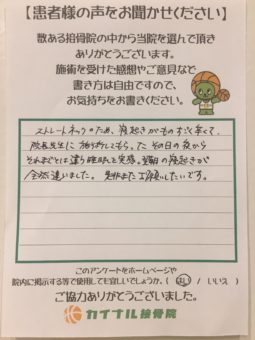 【患者様の声をお聞かせください】
数ある接骨院の中から当院を選んで頂き
ありがとうございます。
施術を受けた感想やご意見など
書き方は自由ですので、
お気持ちをお書きください。
ストレートネックのため、寝起きがものすごく辛くて、
院長先生に施術してもらったその日の夜から
それまでとは違う睡眠を実感。翌朝の寝起きが
全然違いました。是非またお願いしたいです。
このアンケートをホームページや
院内に掲示する等で使用しても宜しいでしょうか。( はい / いいえ )
ご協力ありがとうございました。
カイナル接骨院